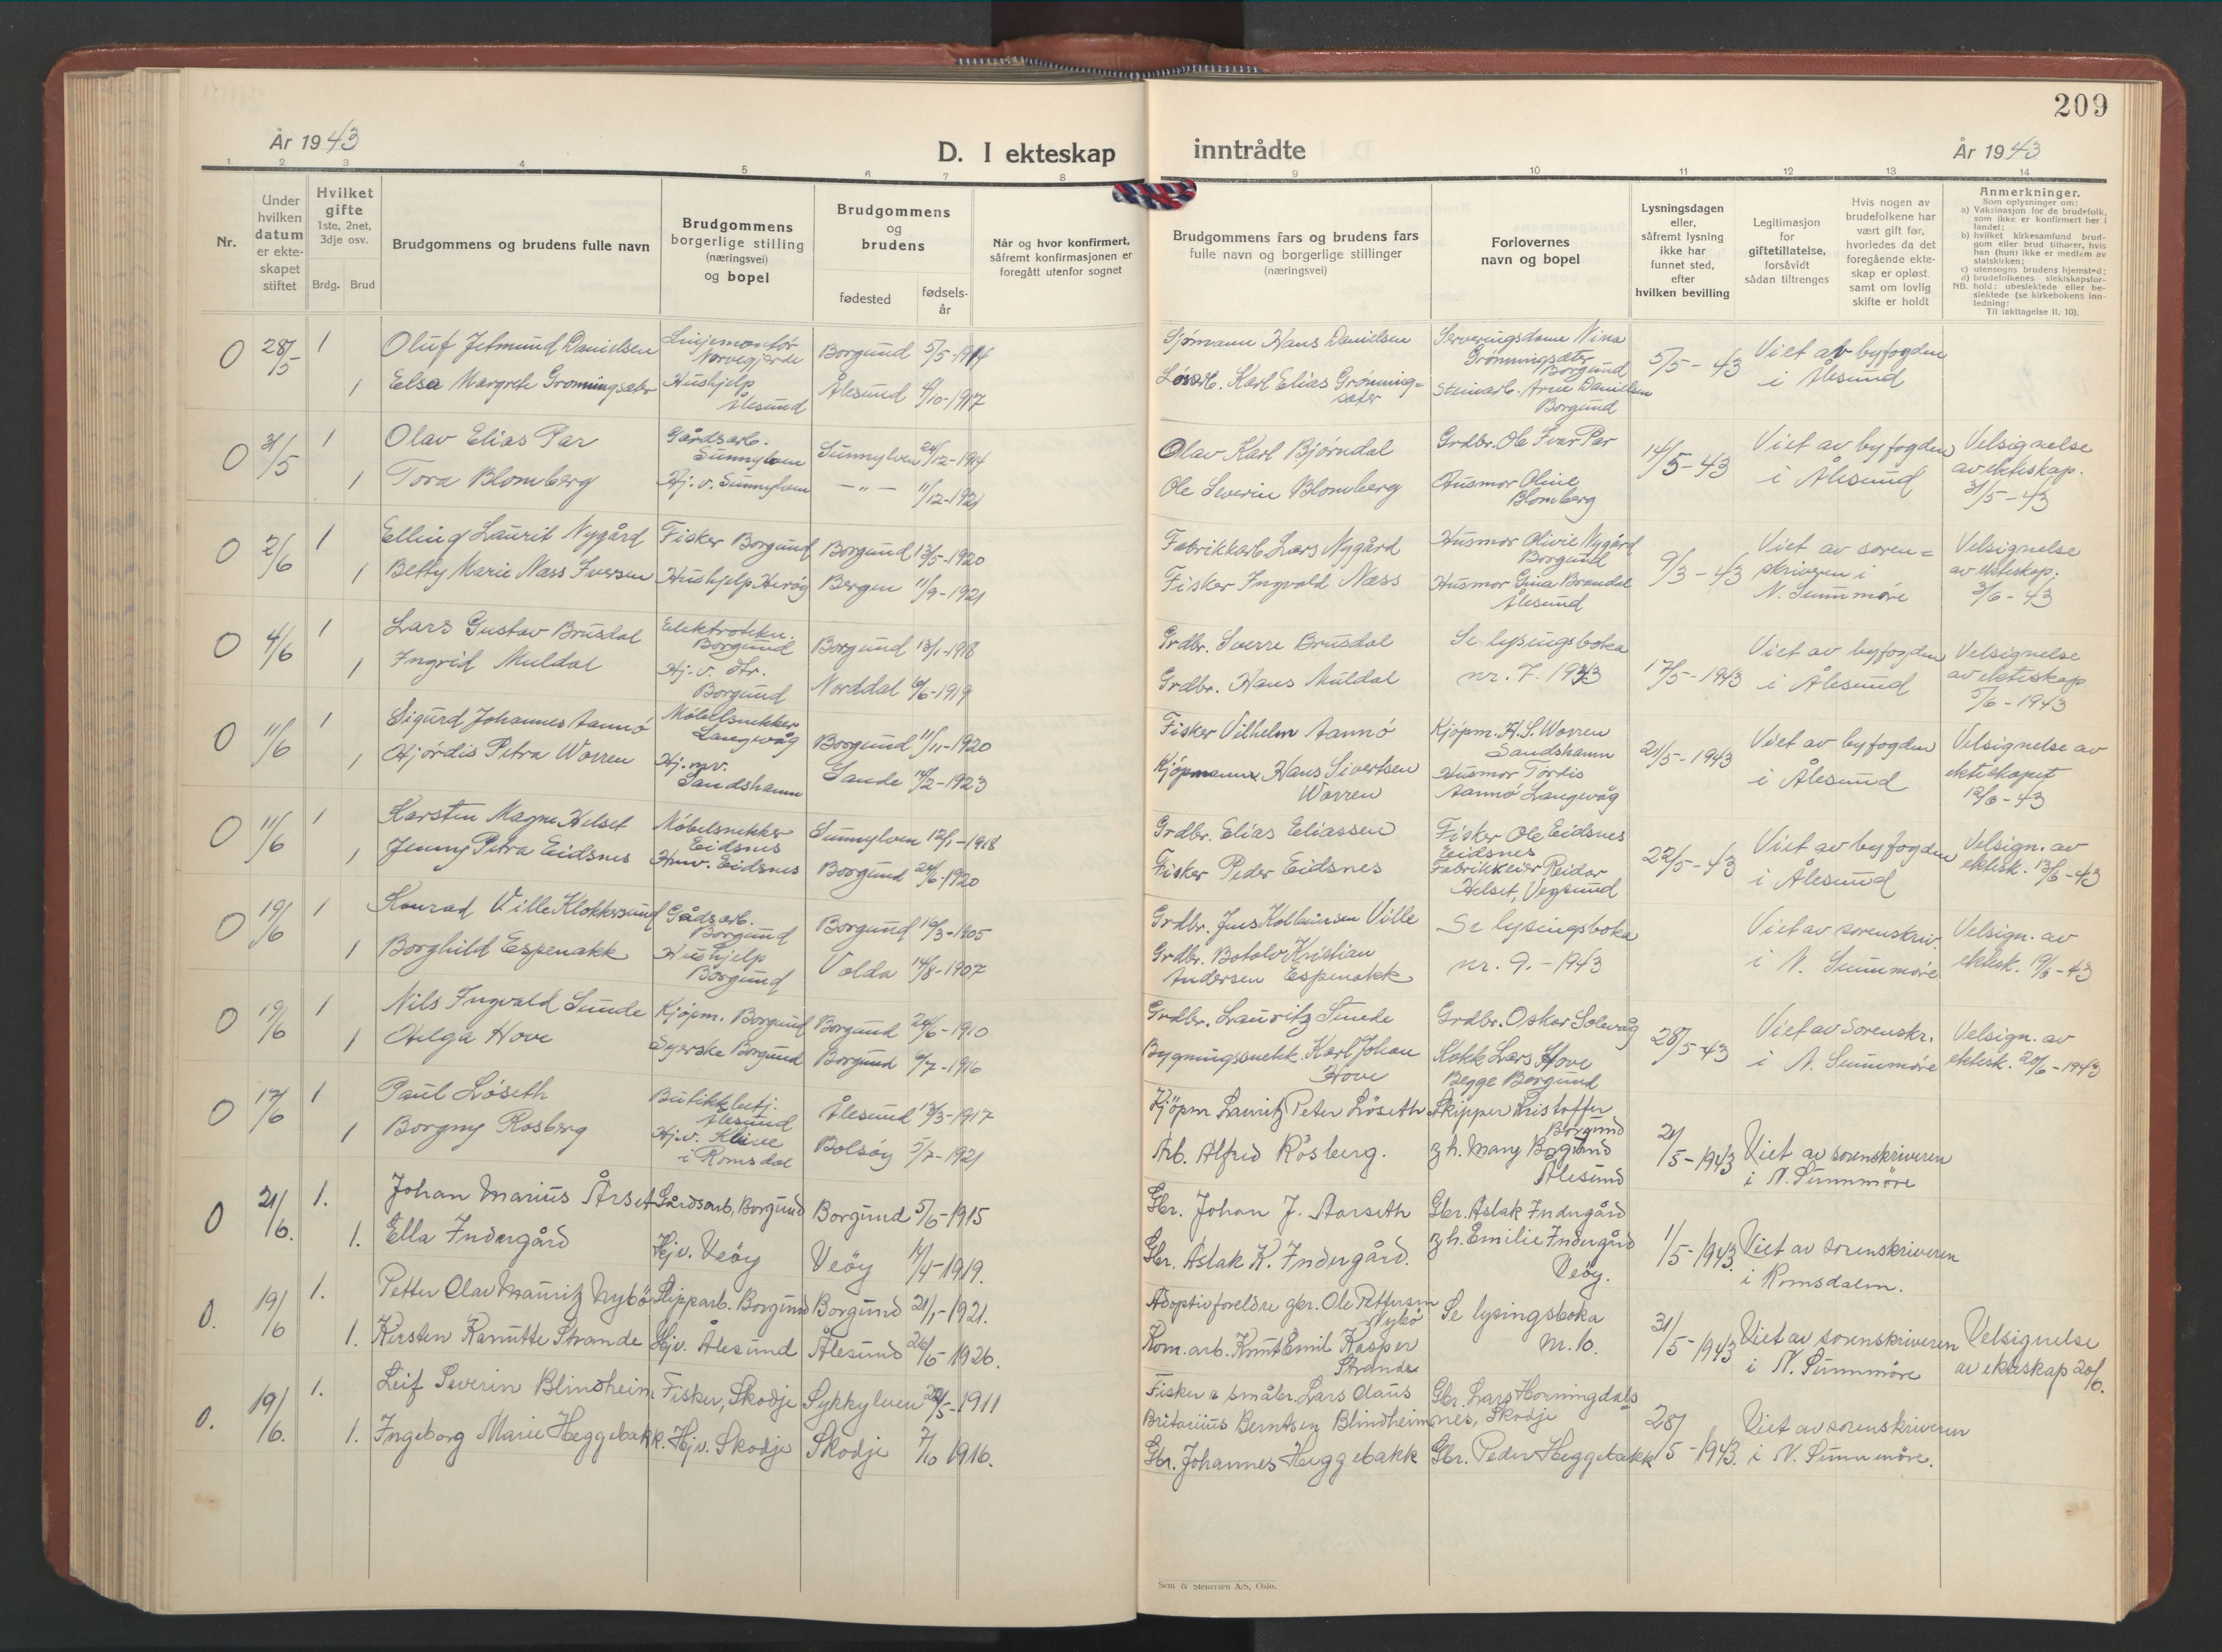 209
År 1943
D. I ekteskap
inntrådte
År 1943
1 2 3 4 5 6 7 8 9 10 11 12 13 14
Nr.
Under hvilken datum er ekte-skapet stiftet
Hvilket gifte 1ste, 2net, 3dje osv.
Brdg. Brud
Brudgommens og brudens fulle navn
Brudgommens borgerlige stilling (næringsvei) og bopel
Brudgommens og brudens
fødested
fødsels-år
Når og hvor konfirmert, såfremt konfirmasjonen er foregått utenfor sognet
Brudgommens fars og brudens fars fulle navn og borgerlige stillinger (næringsvei)
Forlovernes navn og bopel
Lysningsdagen eller, såfremt lysning ikke har funnet sted, efter hvilken bevilling
Legitimasjon for giftetillatelse, forsåvidt sådan tiltrenges
Hvis nogen av brudefolkene har vært gift før, hvorledes da det foregående ekte-skap er opløst. samt om lovlig skifte er holdt
Anmerkninger.
Som oplysninger om:
a) Vaksinasjon for de brudefolk, som ikke er konfirmert her i landet;
b) hvilket kirkesamfund brud-gom eller brud tilhører, hvis han (hun) ikke er medlem av statskirken;
c) utensogns brudens hjemsted;
d) brudefolkenes slektskapsfor-hold: ubeslektede eller be-slektede (se kirkebokens inn-ledning:
NB.
Til iakttagelse II. 10).
0 28/5 1 Oluf Jetmund Danielsen Linjemontør Norvegjerde Borgund 5/5-1914
1 Elsa Margrete Grønningsæter Hushjelp Ålesund Ålesund 4/10-1917
Sjømann Hans Danielsen Serveringsdame Nina Grønningsæter Borgund 5/5-43 Viet av byfogden i Ålesund
Karl Elias Grønning=sæter Steinarb. Arne Danielsen Borgund
0 31/5 1 Olav Elias Par Gårdsarb. Sunnylven Sunnylven 24/12-1914
1 Tora Blomberg Hj. v. Sunnylven -"- 11/12-1921
Olav Karl Bjørndal Grdbr. Ole Iver Par 14/5-43 Viet av byfogden i Ålesund Velsignelse av ekteskap. 31/5-43
Ole Severin Blomberg Husmor Oline Blomberg
0 2/6 1 Elling Laurit Nygård Fisker Borgund Borgund 13/5-1920
1 Betty Marie Næss Iversen Hushjelp Herøy Bergen 11/9-1921
Fabrikkarb. Lars Nygård Husmor Olivie Nygård Borgund 9/3-43 Viet av soren=skriveren i N. Sunnmøre Velsignelse av ekteskap. 3/6-43
Fisker Ingvald Næss Husmor Gina Brandal Ålesund
0 4/6 1 Lars Gustav Brusdal Elektrotekn. Borgund Borgund 13/1-1918
1 Ingrid Muldal Hj. v. str. Borgund Norddal 6/6-1919
Grdbr. Sverre Brusdal Se lysingsboka nr. 7. 1943 17/5-1943 Viet av byfogden i Ålesund Velsignelse av ekteskap 5/6-1943
Grdbr. Hans Muldal
0 11/6 1 Sigurd Johannes Aannø Møbelsnekker Langevåg Borgund 11/11-1920
1 Hjørdis Petra Worren Hj. v. Sandshamn Sande 14/2-1923
Fisker Vilhelm Aannø Kjøpm. H. S. Worren Sandshamn 21/5-1943 Viet av byfogden i Ålesund Velsignelse av ekteskapet 12/6-43
Kjøpmann Hans Sivertsen Worren Husmor Tordis Aannø Langevåg
0 11/6 1 Karsten Magne Helset Møbelsnekker Eidsnes Sunnylven 12/1-1918
1 Jenny Petra Eidsnes Hmv. Eidsnes Borgund 24/6-1920
Grdbr. Elias Eliassen Fisker Ole Eidsnes Eidsnes 22/5-43 Viet av byfogden i Ålesund Velsign. av ektesk. 13/6-43
Fisker Peder Eidsnes Fabrikkeier Reidar Helset, Vegsund
0 19/6 1 Konrad Ville Klokkersund Gådsarb. Borgund Borgund 16/3-1905
1 Borghild Espenakk Hushjelp Borgund Volda 14/8-1907
Grdbr. Jens Kolbeinsen Ville Se lysingsboka nr. 9.-1943 Viet av sorenskriv. i N. Sunnmøre Velsign. av ektesk. 19/6-43
Grdbr. Botolv Kristian Andersen Espenakk
0 19/6 1 Nils Ingvald Sunde Kjøpm. Borgund Borgund 24/6-1910
1 Helga Hove Syerske Borgund Borgund 6/7-1916
Grdbr. Lauritz Sunde Grdbr. Oskar Solevåg 28/5-43 Viet av Sorenskr. i N. Sunnmøre Velsign. av ektesk. 20/6-1943
Bygningssnekk. Karl Johan Hove Kokk Lars Hove Begge Borgund
0 17/6 1 Paul Løseth Butikkbetj. Ålesund Ålesund 13/3-1917
1 Borgny Rosberg Hj.v. Kleive i Romsdal Bolsøy 5/7-1921
Kjøpm Lauritz Peter Løseth Skipper Kristoffer Borgund 21/5-1943 Viet av sorenskriveren i N. Sunnmøre
Arb. Alfred Rösberg. g.h. Mary Borgund Ålesund
0 21/6. 1. Johan Marius Årset Gårdsarb, Borgund Borgund 5/6-1915
1. Ella Indergård Hj v. Veöy Veöy 14/4-1919.
Gbr. Johan J. Aarseth Gbr. Aslak Indergård 1/5-1943. Viet av sorenskriveren i Romsdalen.
Gbr. Aslak K. Indergård. g.h. Emilie Indergård Veöy.
0. 19/6 1. Petter Olav Mauritz Nybö Slipparb. Borgund Borgund 21/1-1921.
1. Kirsten Ranutte Strande Hj v. Ålesund Ålesund 26/5-1926.
Adoptivforeldre gbr. Ole Pettersen Nybö Se lysingsboka nr. 10. 31/5-1943 Viet av sorenskriveren i N. Sunnmøre Velsignelse av ekteskap 20/6.
Kom. arb. Knut Emil Kasper Strande
0. 19/6. 1. Leif Severin Blindheim Fisker, Skodje Sykkylven 22/5-1911
1. Ingeborg Marie Heggebakk. Hj v. Skodje Skodje 7/10 1916.
Fisker & småbr. Lars Claus Britanius Berntsen Blindheim Gbr. Lars Horningdalsnes, Skodje 28/5-1943. Viet av sorenskriveren i N. Sunnmøre.
Gbr. Johannes Heggebakk Gbr. Peder Heggebakk
Sem & Stenersen A/S, Oslo.